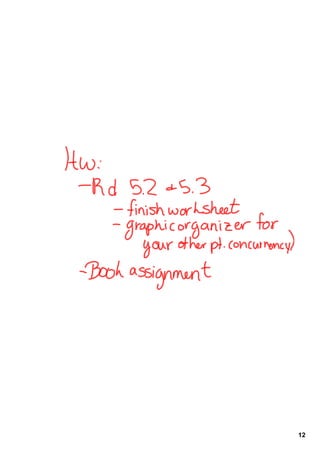 Hw:
-Rd 5.2 + 5.3
- finish worksheet
- graphic organizer for
your other pt. concurrency)
-Book assignment
12